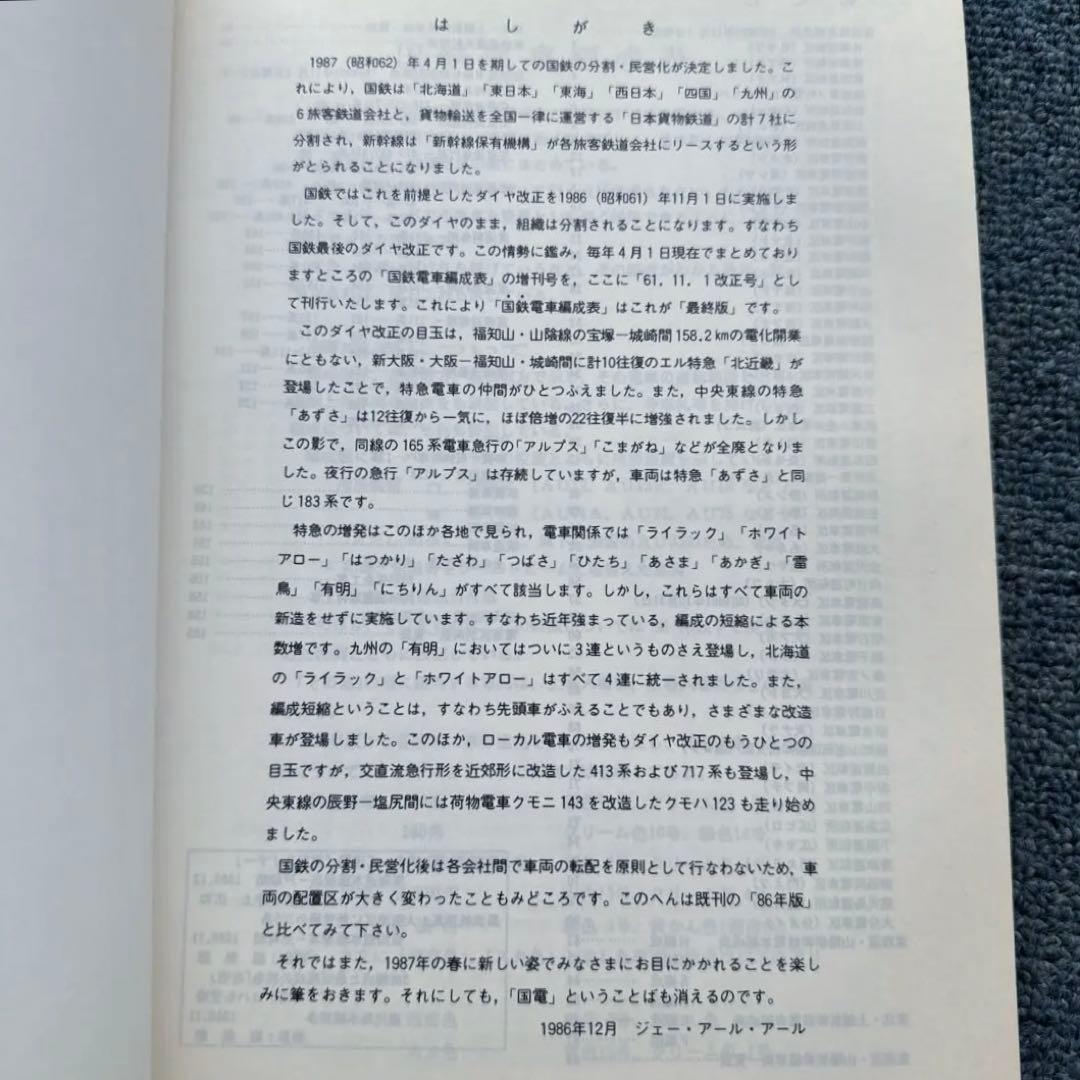 はしがき
1987（昭和62）年４月１日を期しての国鉄の分割・民営化が決定しました。こ
れにより，国鉄は「北海道」「東日本」「東海」「西日本」「四国」「九州」の
６旅客鉄道会社と，貨物輸送を全国一律に運営する「日本貨物鉄道」の計７社に
分割され，新幹線は「新幹線保有機構」が各旅客鉄道会社にリースするという形
がとられることになりました。
国鉄ではこれを前提としたダイヤ改正を1986（昭和61）年11月１日に実施しま
した。そして，このダイヤのまま，組織は分割されることになります。すなわち
国鉄最後のダイヤ改正です。この情勢に鑑み，毎年４月１日現在でまとめており
ますところの「国鉄電車編成表」の増刊号を，ここに「61．11．１改正号」とし
て刊行いたします。これにより「国鉄電車編成表」はこれが「最終版」です。
このダイヤ改正の目玉は，福知山・山陰線の宝塚―城崎間158.2㎞の電化開業
にともない，新大阪・大阪―福知山・城崎間に計10往復のエル特急「北近畿」が
登場したことで，特急電車の仲間がひとつふえました。また，中央東線の特急
「あずさ」は12往復から一気に，ほぼ倍増の22往復半に増強されました。しかし
この影で，同線の165系電車急行の「アルプス」「こまがね」などが全廃となりま
した。夜行の急行「アルプス」は存続していますが，車両は特急「あずさ」と同
じ183系です。
特急の増発はこのほか各地で見られ，電車関係では「ライラック」「ホワイト
アロー」「はつかり」「たざわ」「つばさ」「ひたち」「あさま」「あかぎ」「雷
鳥」「有明」「にちりん」がすべて該当します。しかし，これらはすべて車両の
新造をせずに実施しています。すなわち近年強まっている，編成の短縮による本
数増です。九州の「有明」においてはついに３連というものさえ登場し，北海道
の「ライラック」と「ホワイトアロー」はすべて４連に統一されました。また，
編成短縮ということは，すなわち先頭車がふえることでもあり，さまざまな改造
車が登場しました。このほか，ローカル電車の増発もダイヤ改正のもうひとつの
目玉ですが，交直流急行形を近郊形に改造した413系および717系も登場し，中
央東線の辰野―塩尻間には荷物電車クモニ143を改造したクモハ123も走り始め
ました。
国鉄の分割・民営化後は各会社間で車両の転配を原則として行なわないため，車
両の配置区が大きく変わったこともみどころです。このへんは既刊の「86年版」
と比べてみて下さい。
それではまた，1987年の春に新しい姿でみなさまにお目にかかれることを楽し
みに筆をおきます。それにしても，「国電」ということばも消えるのです。
1986年12月　ジェー・アール・アール